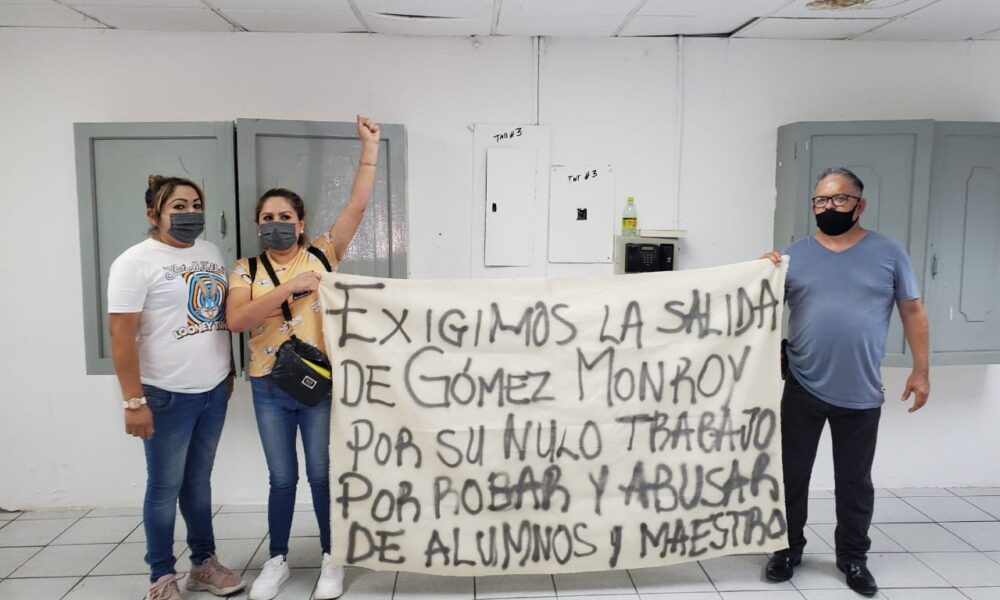 TAB #3
TNT #3
LOONEY TUNES
EXIGIMOS LA SALIDA
DE GÓMEZ MONROY
POR SU NULO TRABAJO
POR ROBAR Y ABUSAR
DE ALUMNOS Y MAESTRO